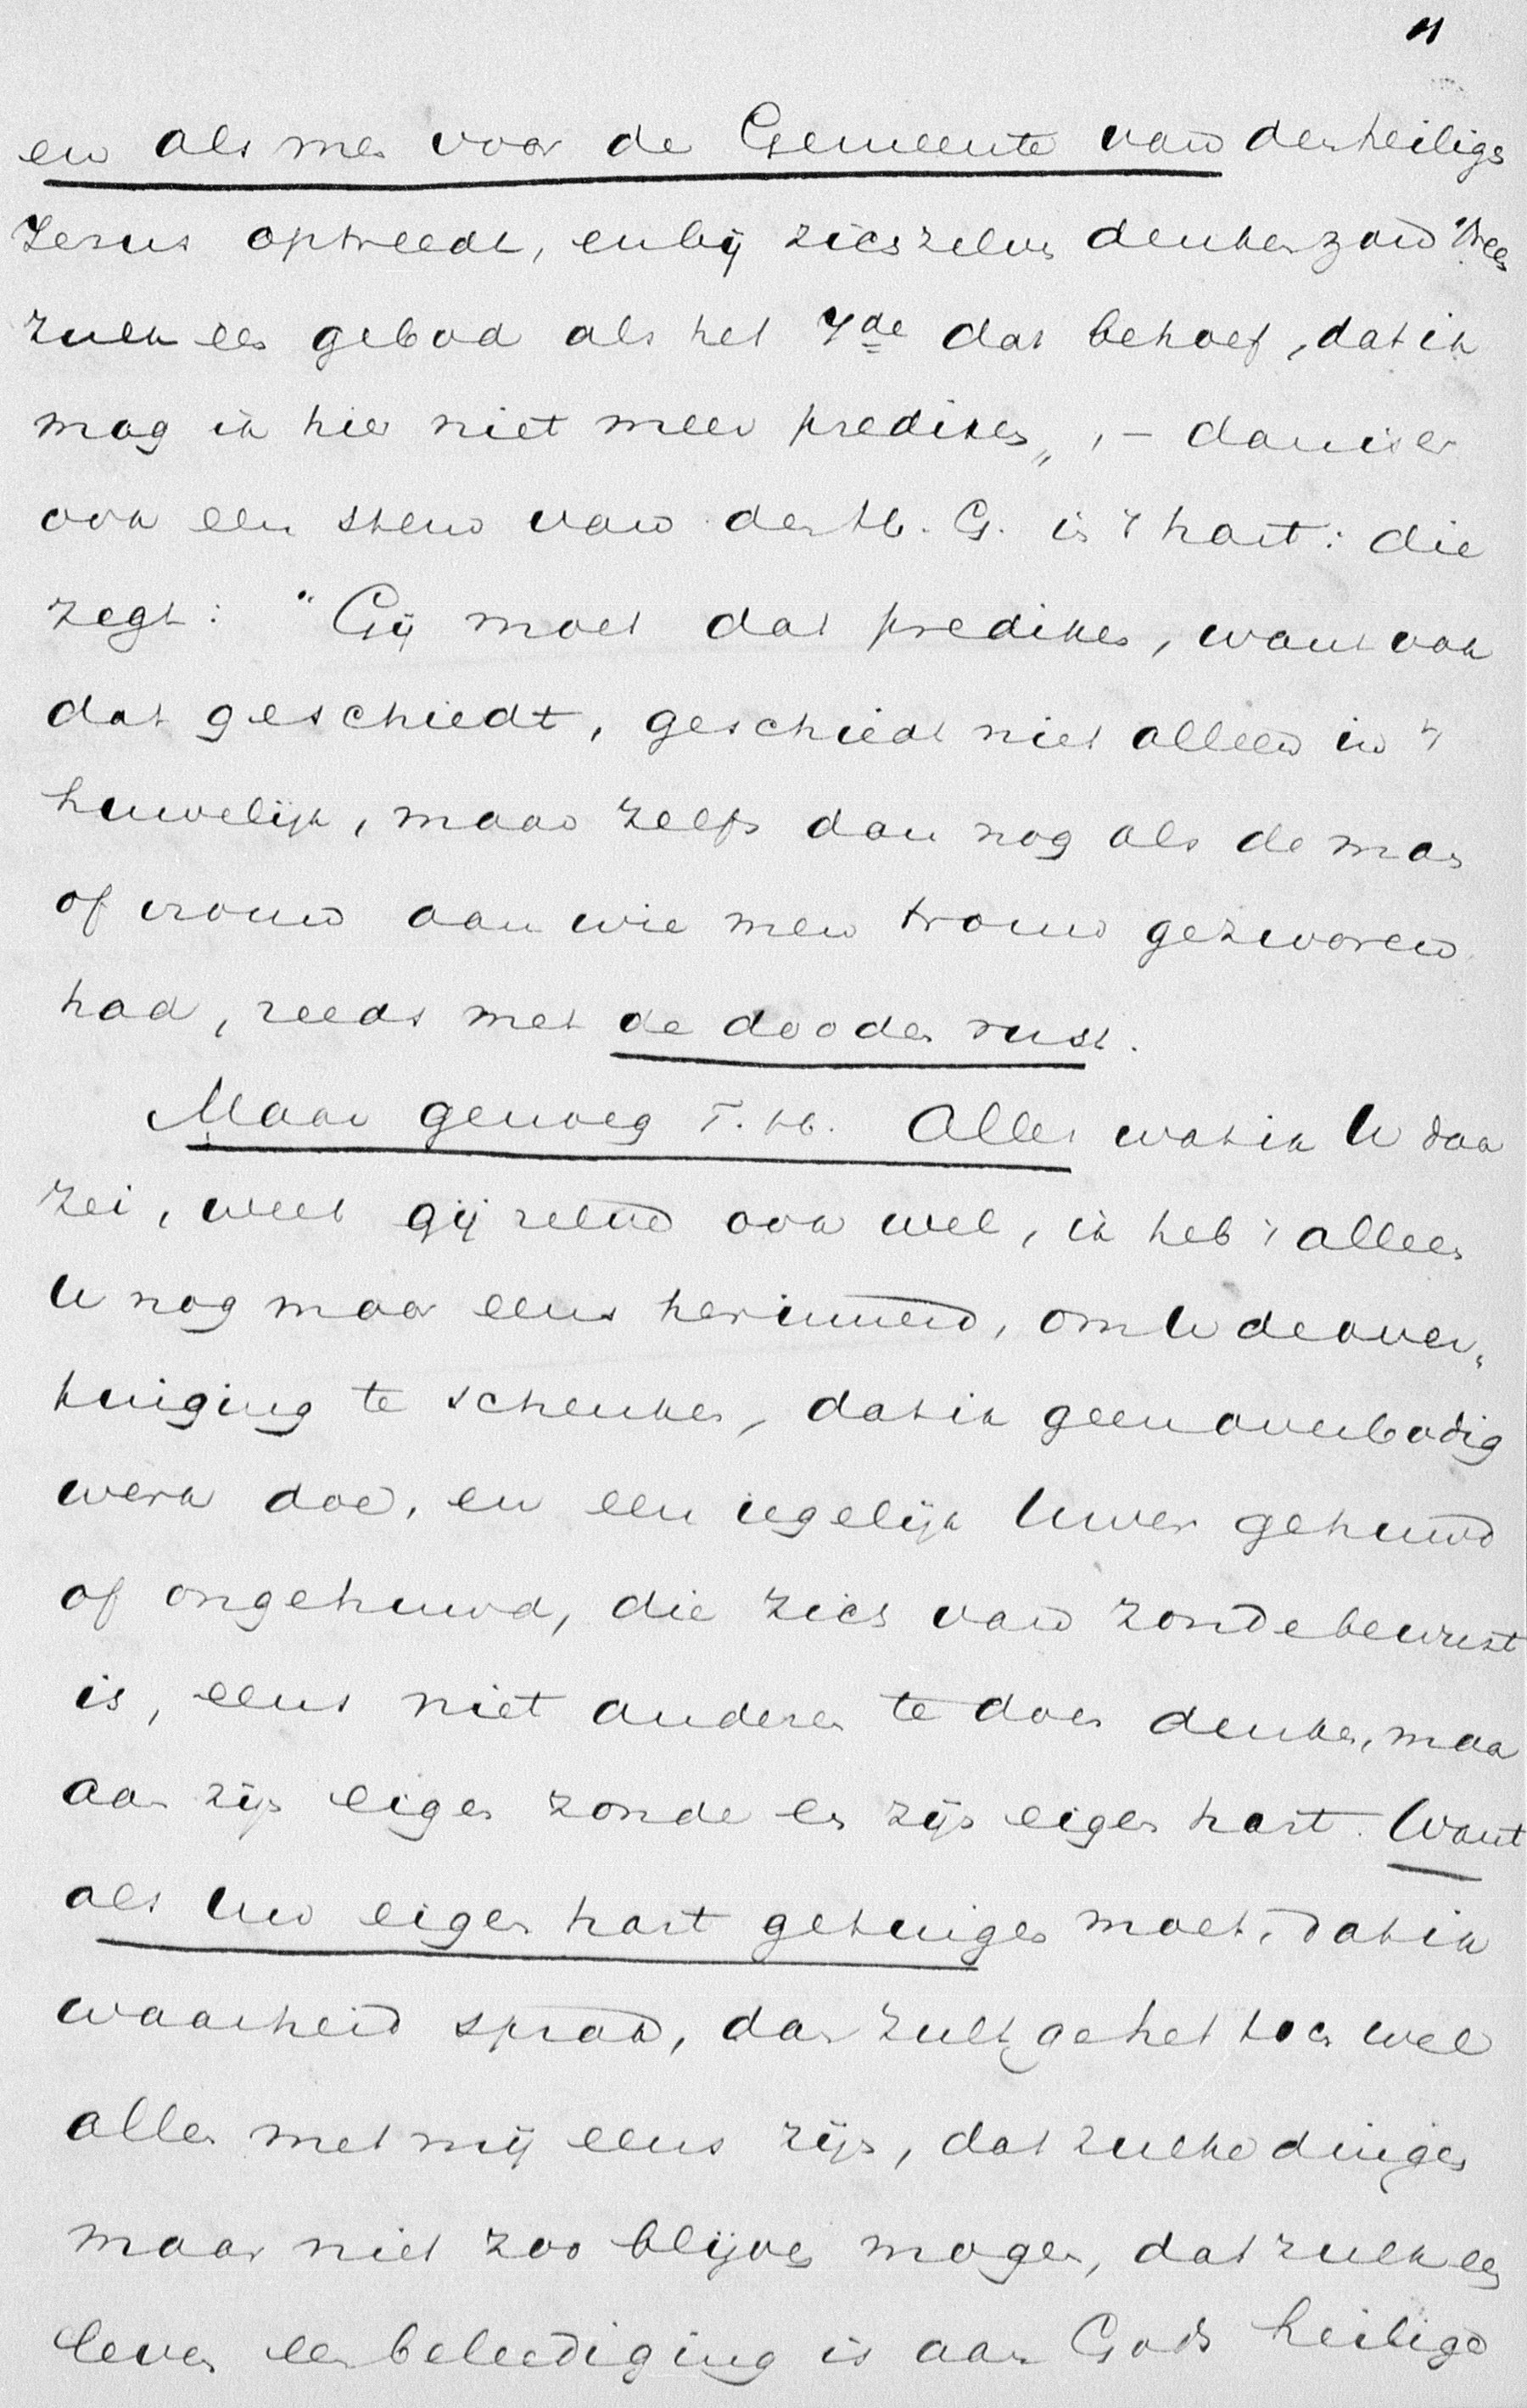 11
en als men voor de Gemeente van den heiligen
Jezus optreedt, en bij zich zelven denken zou "Neen
zulk een gebod als het 7de dat behoef, dat ik
mag ik hier niet meer prediken„, – dan is er
ook een stem van den H. G. in 't hart: die
zegt: "Gij moet dat prediken, want ook
dat geschiedt, geschiedt niet alleen in 't
huwelijk, maar zelfs dan nog als de man
of vrouw aan wie men trouw gezworen
had, reeds met de dooden rust.
Maar genoeg T. H. Alles wat ik U daar
zei, weet gij zelven ook wel, ik heb 't alleen
U nog maar eens herinnerd, om U de over„
tuiging te schenken, dat ik geen overbodig
werk doe, en een iegelijk Uwer gehuwd
of ongehuwd, die zich van zonde bewust
is, eens niet anders te doen denken, maar
aan zijn eigen zonde en zijn eigen hart. Want
als Uw eigen hart getuigen moet, dat ik
waarheid sprak, dan zult ge het toch wel
allen met mij eens zijn, dat zulke dingen
maar niet zoo blijven mogen, dat zulk een
leven een beleediging is aan Gods heilige